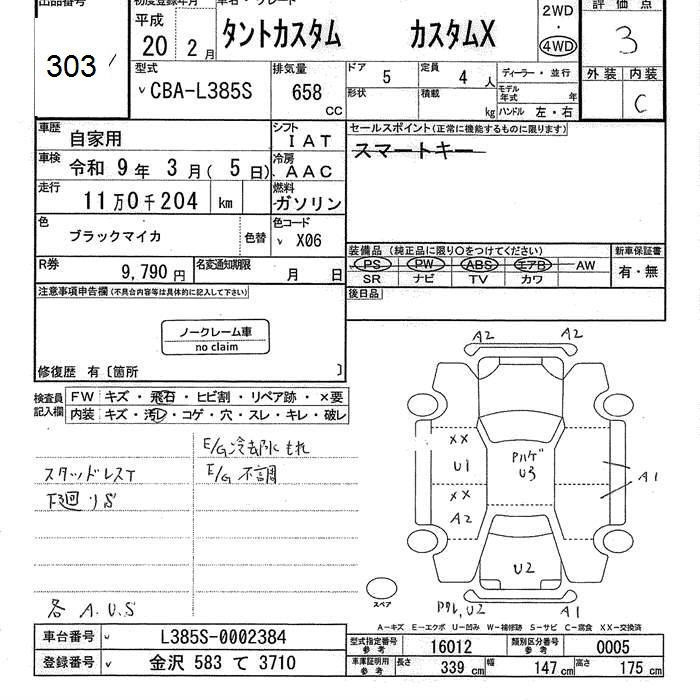 出品番号 初度登録年月 車名・グレード 2WD 評価点
303 平成 20 2月 タントカスタム カスタムX ・ 4WD 3
型式 CBA-L385S 排気量 658 CC ドア 5 定員 4 人 ディーラー・並行 外装 内装
形状 積載 kg モデル年式 年 ハンドル 左・右 C
車歴 自家用 シフト IAT セールスポイント(正常に機能するものに限ります)
車検 令和 9年 3月( 5日) 冷房 AAC スマートキー
走行 11万0千204 km 燃料 ガソリン
色 ブラックマイカ 色替 色コード X06
装備品(純正品に限り○をつけてください) 新車保証書
R券 9,790円 名変通知期限 月 日 PS PW ABS エアB AW 有・無
SR ナビ TV カワ
注意事項申告欄(不具合内容等は具体的に記入して下さい) 後日品
ノークレーム車
no claim
修復歴 有〔箇所 〕
検査員記入欄 FW キズ・飛石・ヒビ割・リペア跡・×要
内装 キズ・汚レ・コゲ・穴・スレ・キレ・破レ
E/G冷却水もれ
スタッドレスT E/G不調
下廻りS
各 A.U.S
A2 A2
XX U1 U3
XX A2 A1
U2
スペア U2 A1
A-キズ E-エクボ U-凹み W-補修跡 S-サビ C-腐食 XX-交換済
車台番号 L385S-0002384 型式指定番号 参考 16012 類別区分番号 参考 0005
登録番号 金沢 583 て 3710 車庫証明用 参考 長さ 339cm 幅 147cm 高さ 175cm